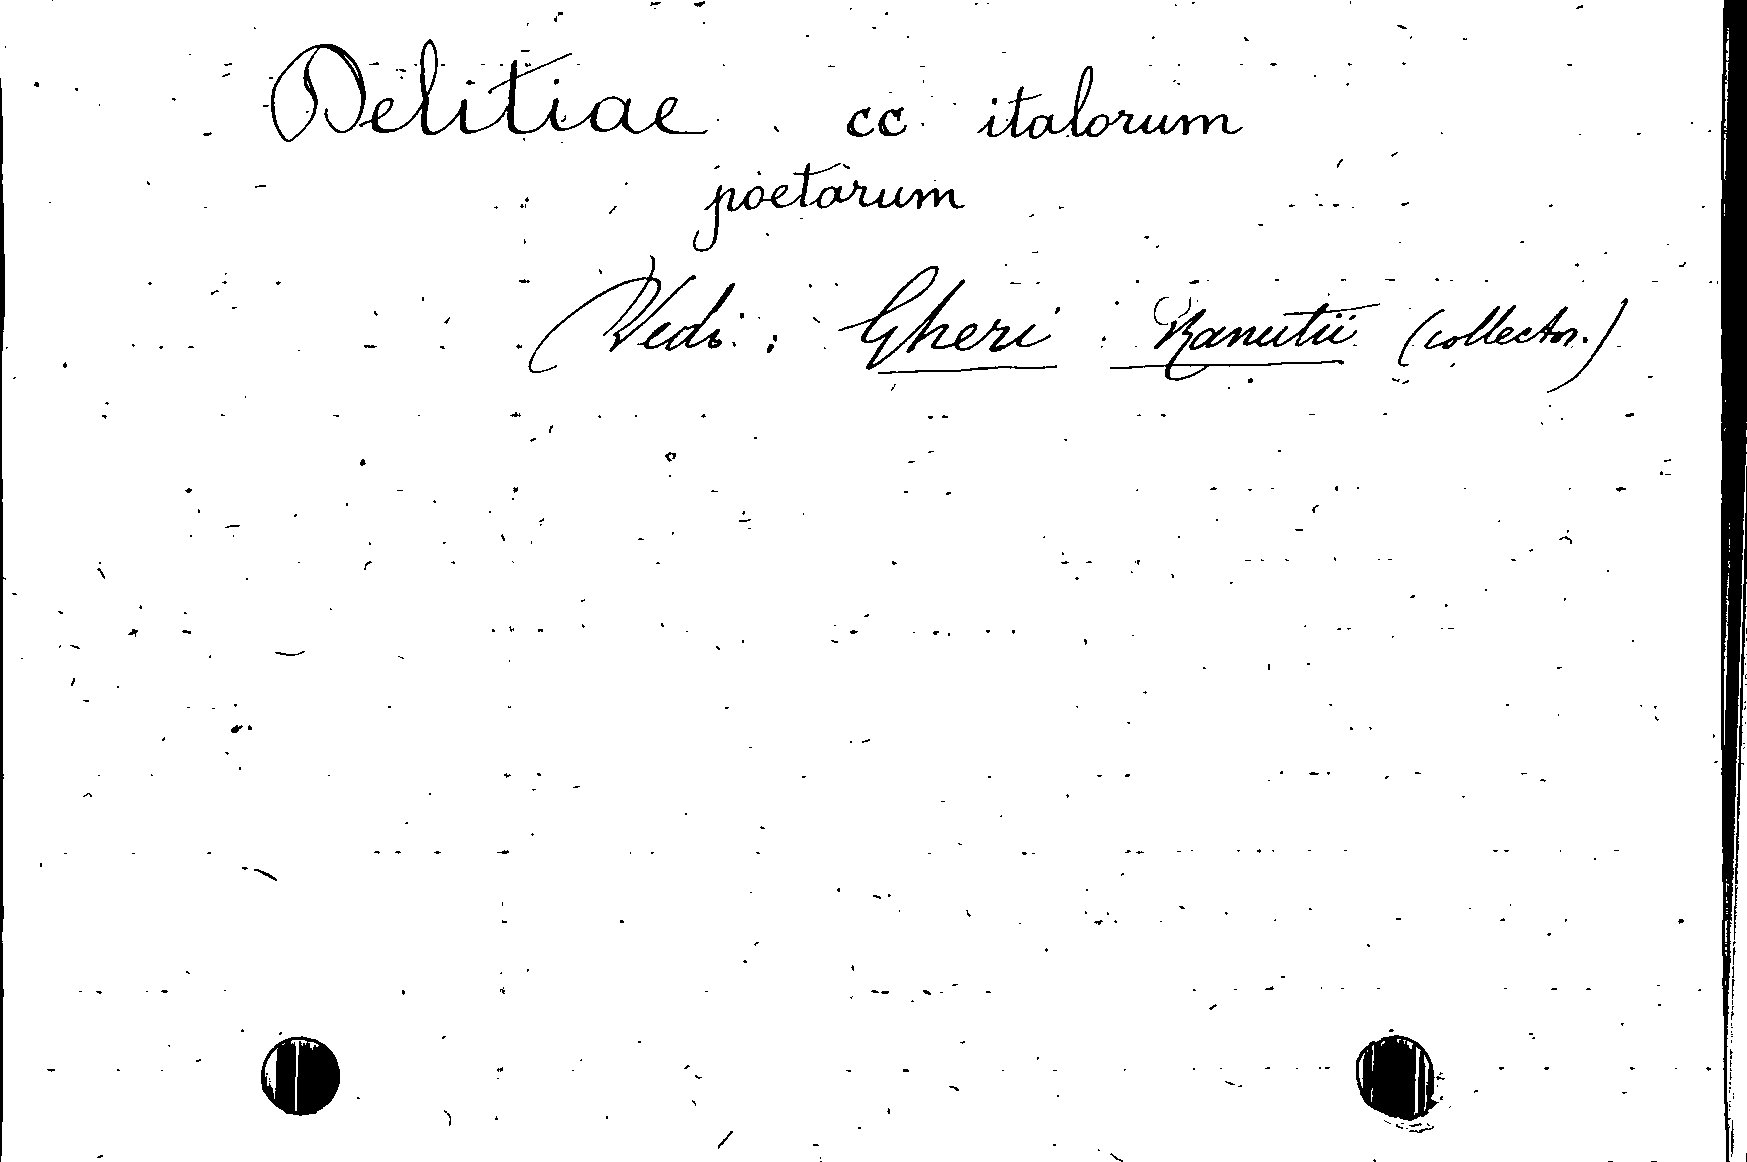 Delitiae cc italorum
poetarum
Vedi : Gheri Ranutii (collector.)